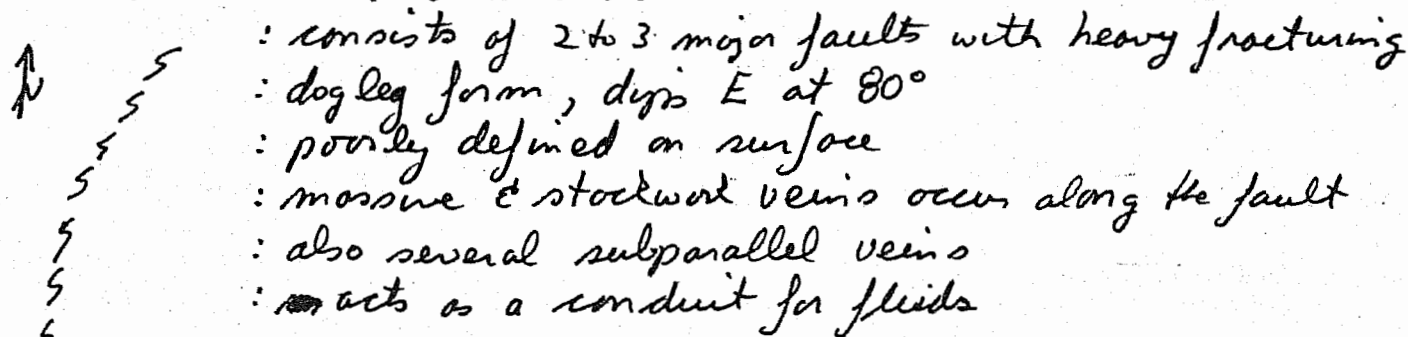 : consists of 2 to 3 major faults with heavy fracturing
: dog leg form, dips E at 80°
: poorly defined on surface
: massive & stockwork veins occur along the fault
: also several subparallel veins
: acts as a conduit for fluids